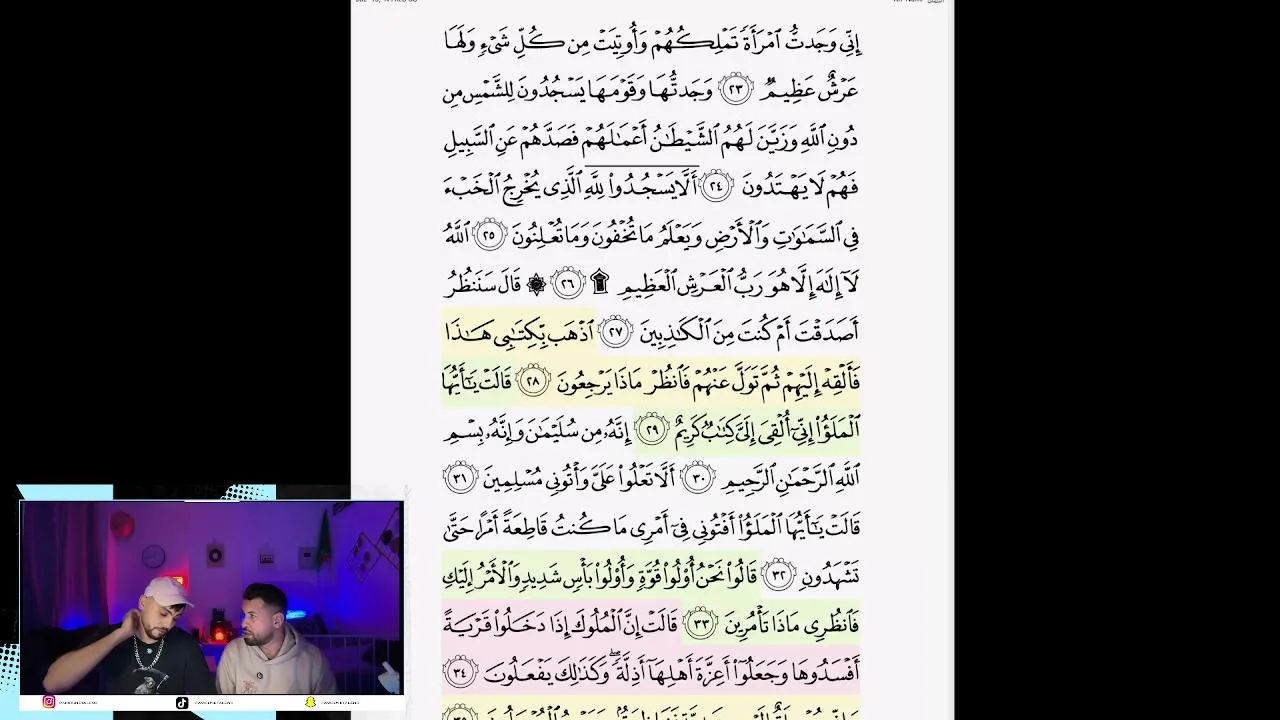 إِنِّى وَجَدتُّ ٱمْرَأَةً تَمْلِكُهُمْ وَأُوتِيَتْ مِن كُلِّ شَىْءٍ وَلَهَا
عَرْشٌ عَظِيمٌ ٢٣ وَجَدتُّهَا وَقَوْمَهَا يَسْجُدُونَ لِلشَّمْسِ مِن
دُونِ ٱللَّهِ وَزَيَّنَ لَهُمُ ٱلشَّيْطَٰنُ أَعْمَٰلَهُمْ فَصَدَّهُمْ عَنِ ٱلسَّبِيلِ
فَهُمْ لَا يَهْتَدُونَ ٢٤ أَلَّا يَسْجُدُوا۟ لِلَّهِ ٱلَّذِى يُخْرِجُ ٱلْخَبْءَ
فِى ٱلسَّمَٰوَٰتِ وَٱلْأَرْضِ وَيَعْلَمُ مَا تُخْفُونَ وَمَا تُعْلِنُونَ ٢٥ ٱللَّهُ
لَآ إِلَٰهَ إِلَّا هُوَ رَبُّ ٱلْعَرْشِ ٱلْعَظِيمِ ۩ ٢٦ ۞ قَالَ سَنَنظُرُ
أَصَدَقْتَ أَمْ كُنتَ مِنَ ٱلْكَٰذِبِينَ ٢٧ ٱذْهَب بِّكِتَٰبِى هَٰذَا
فَأَلْقِهْ إِلَيْهِمْ ثُمَّ تَوَلَّ عَنْهُمْ فَٱنظُرْ مَاذَا يَرْجِعُونَ ٢٨ قَالَتْ يَٰٓأَيُّهَا
ٱلْمَلَؤُا۟ إِنِّىٓ أُلْقِىَ إِلَىَّ كِتَٰبٌ كَرِيمٌ ٢٩ إِنَّهُۥ مِن سُلَيْمَٰنَ وَإِنَّهُۥ بِسْمِ
ٱللَّهِ ٱلرَّحْمَٰنِ ٱلرَّحِيمِ ٣٠ أَلَّا تَعْلُوا۟ عَلَىَّ وَأْتُونِى مُسْلِمِينَ ٣١
قَالَتْ يَٰٓأَيُّهَا ٱلْمَلَؤُا۟ أَفْتُونِى فِىٓ أَمْرِى مَا كُنتُ قَاطِعَةً أَمْرًا حَتَّىٰ
تَشْهَدُونِ ٣٢ قَالُوا۟ نَحْنُ أُو۟لُوا۟ قُوَّةٍ وَأُو۟لُوا۟ بَأْسٍ شَدِيدٍ وَٱلْأَمْرُ إِلَيْكِ
فَٱنظُرِى مَاذَا تَأْمُرِينَ ٣٣ قَالَتْ إِنَّ ٱلْمُلُوكَ إِذَا دَخَلُوا۟ قَرْيَةً
أَفْسَدُوهَا وَجَعَلُوٓا۟ أَعِزَّةَ أَهْلِهَآ أَذِلَّةً ۖ وَكَذَٰلِكَ يَفْعَلُونَ ٣٤